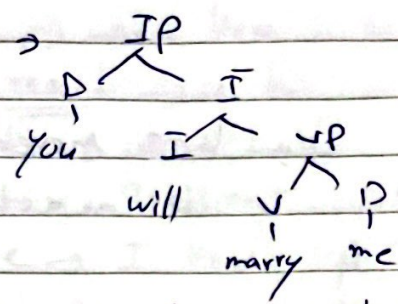 → IP
D Ī
you I VP
will V D
marry me